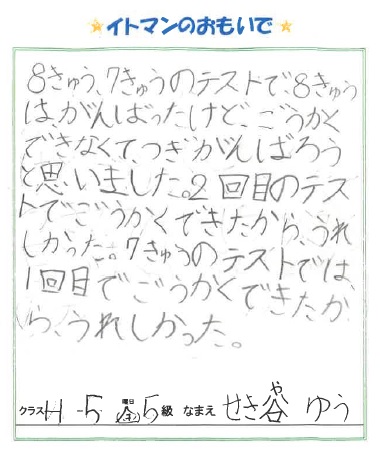 イトマンのおもいで
8きゅう、7きゅうのテストで、8きゅう
は、がんばったけど、ごうかく
できなくて、つぎがんばろう
と思いました。2回目のテス
トでごうかくできたから、うれ
しかった。7きゅうのテストでは、
1回目でごうかくできたか
ら、うれしかった。
クラス H-5 曜日 金 5級 なまえ せき谷 や ゆう